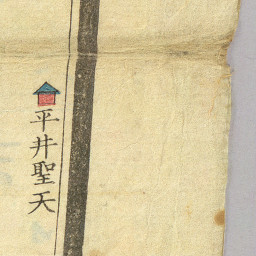 平井聖天